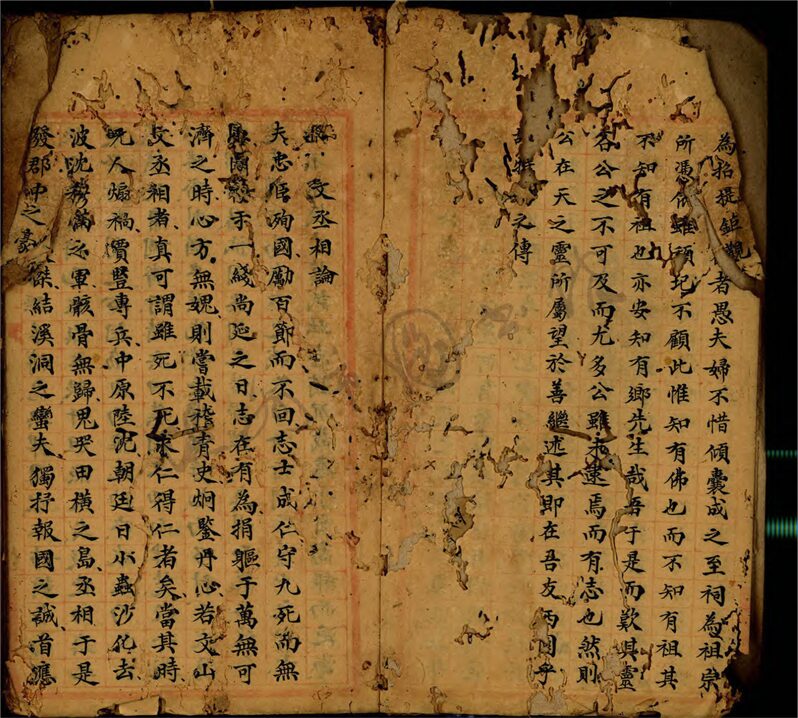 為招提鐘觀者愚夫婦不惜傾囊成之至祠為祖宗
所憑依雖頹圮不顧此惟知有佛也而不知有祖其
不知有祖也亦安知有鄉先生哉吾于是而歎其靈
各公之不可及而尤多公雖未逮焉而有志也然則
公在天之靈所屬望於善繼述其即在吾友丙周乎
之傳
文丞相論
夫忠臣殉國勵百節而不回志士成仁守九死而無
于一綫尚延之日志在有為捐軀于萬無可
濟之時心方無媿則嘗載稽青史炯鑒丹心若文山
文丞相者真可謂雖死不死求仁得仁者矣當其時
兇人煽禍賈豎專兵中原陸沈朝廷日小蟲沙化去
波沈萬之軍骸骨無歸鬼哭田橫之島丞相于是
發郡中之豪傑結溪洞之蠻夫獨抒報國之誠首應